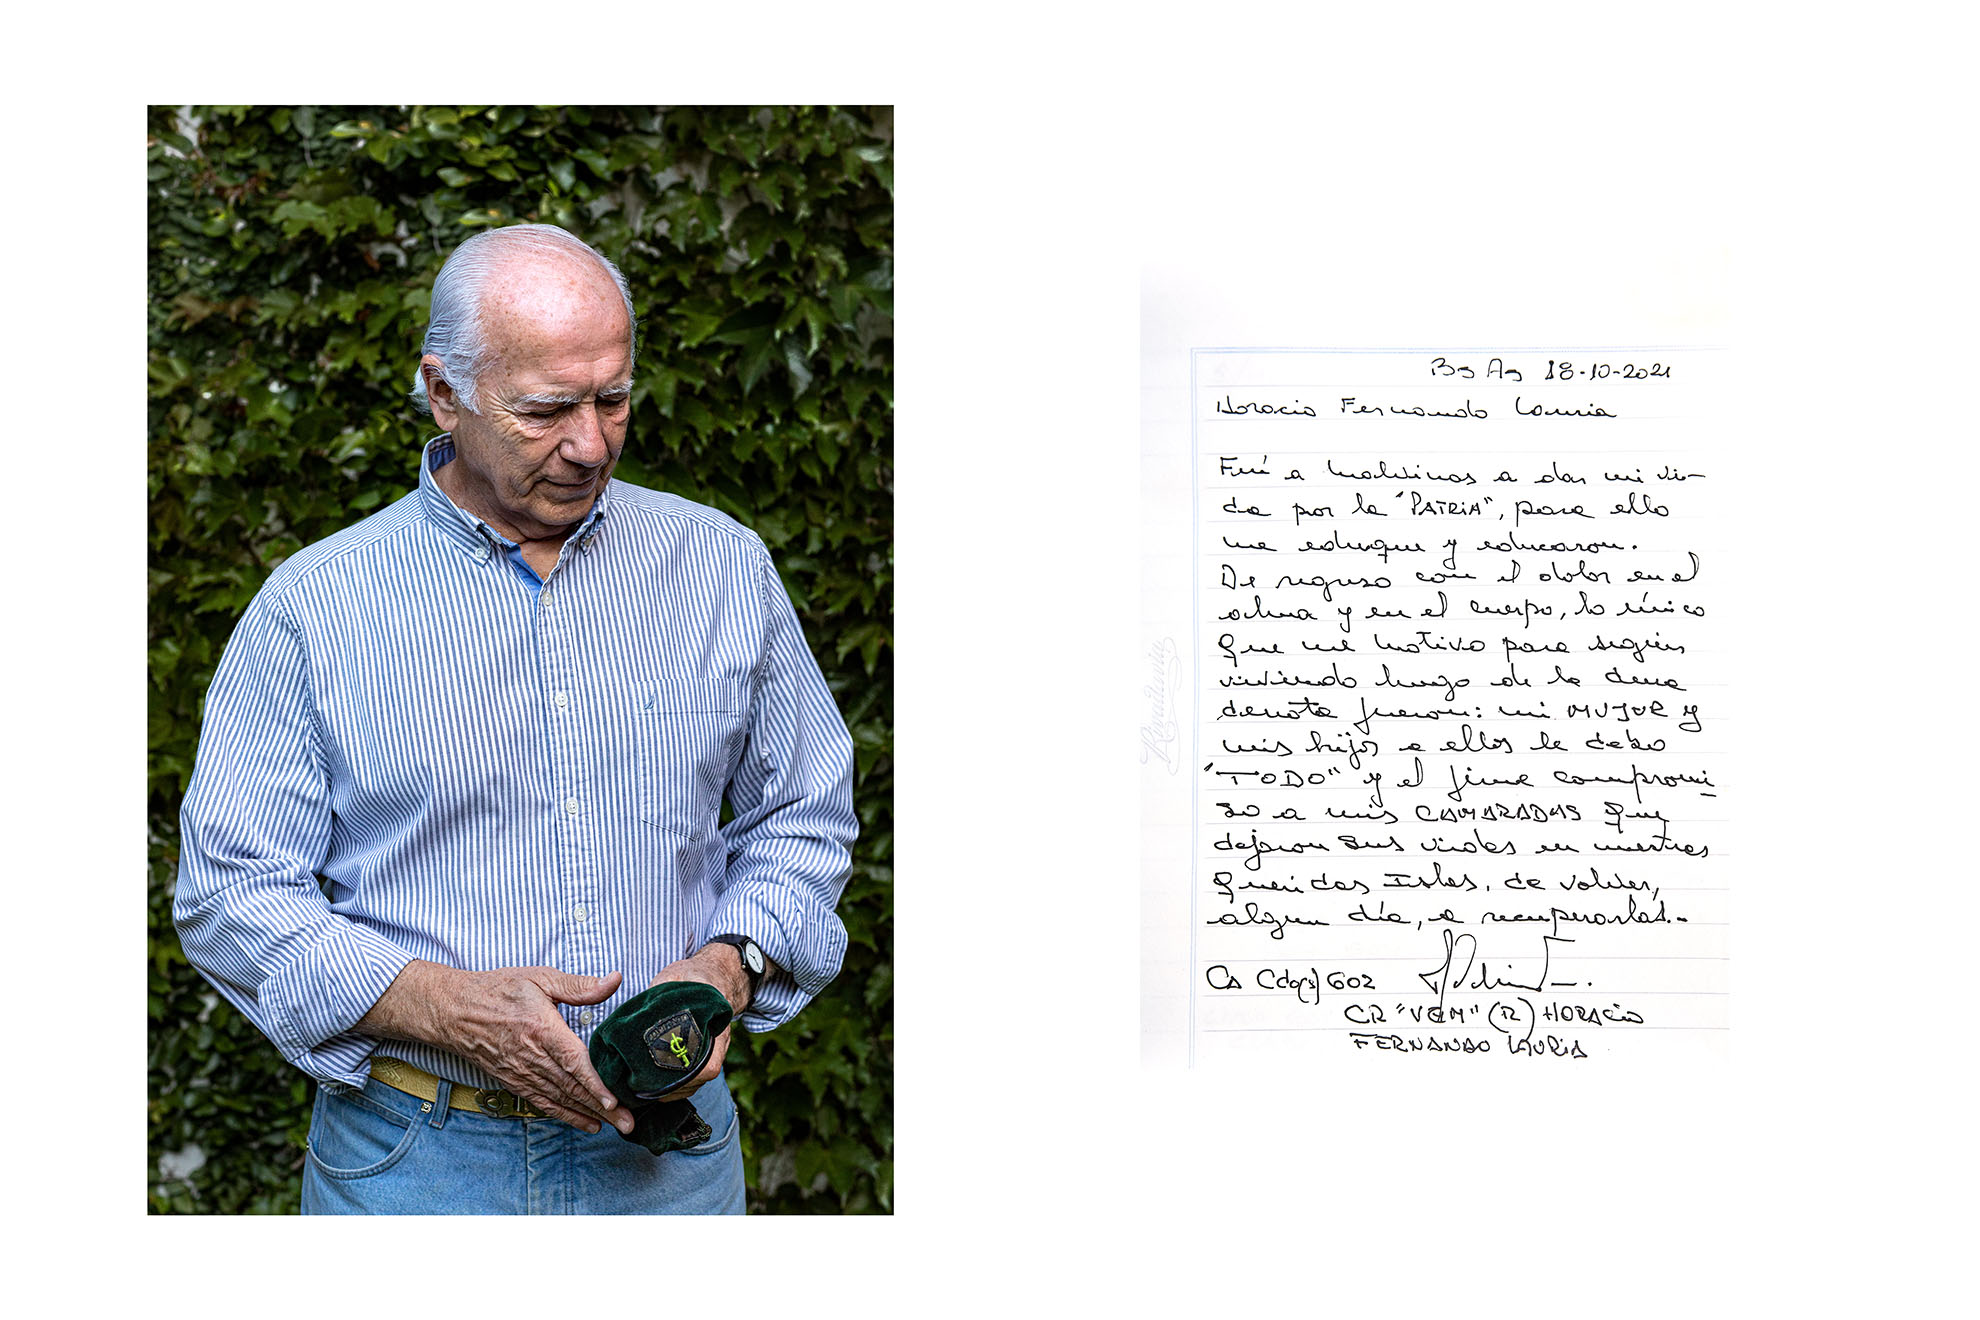 Bs As 18-10-2021
Horacio Fernando Lauria
Fuí a Malvinas a dar mi vi-
da por la "PATRIA", para ello
me eduque y educaron.
De regreso con el dolor en el
alma y en el cuerpo, lo único
que me motivo para seguir
viviendo luego de la dura
derrota fueron: mi MUJER y
mis hijos a ellos le debo
"TODO" y el firme compromi
so a mis CAMARADAS que
dejaron sus vidas en nuestras
queridas Islas, de volver,
algún día, a recuperarlas.-
Ca Cdo(s) 602
CR "VGM" (R) HORACIO
FERNANDO LAURIA
Rivadavia